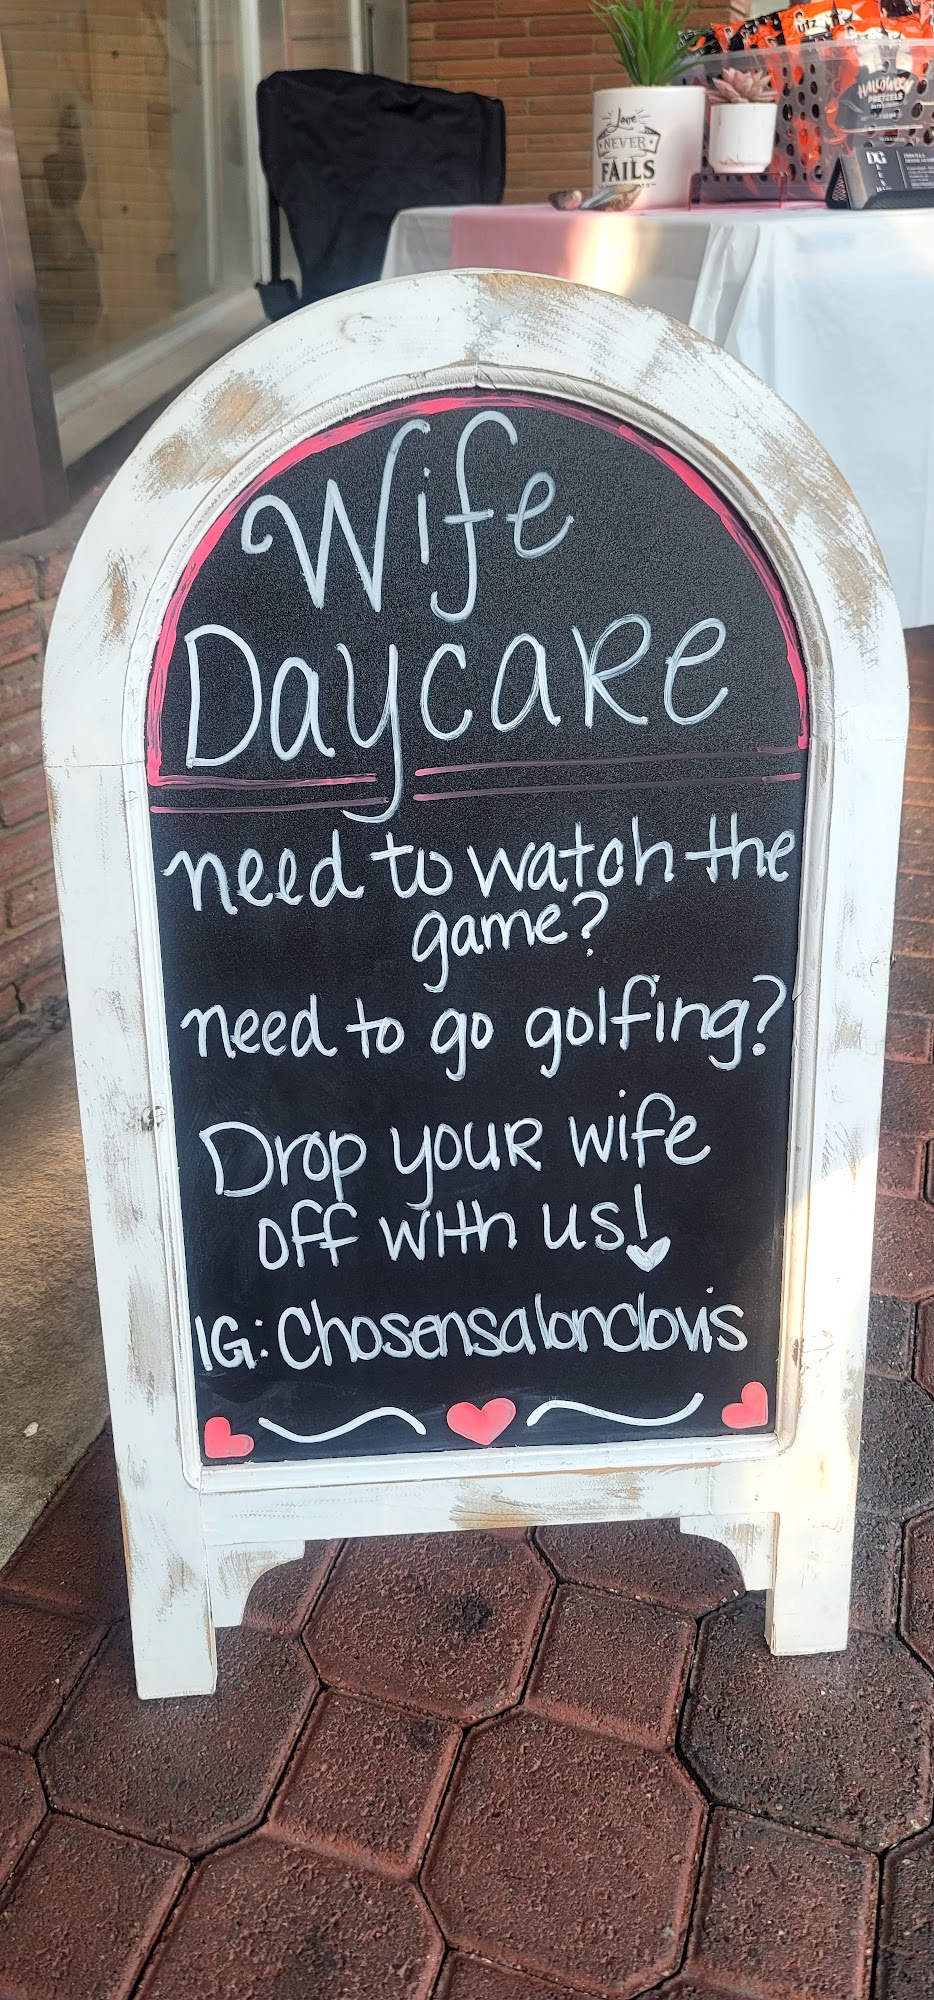 utz
HALLOWEEN
PRETZELS
Love
NEVER
FAILS
DG
Wife
DaycaRe
need to watch the
game?
need to go golfing?
Drop youR wife
off with us!
IG: Chosensalonclovis